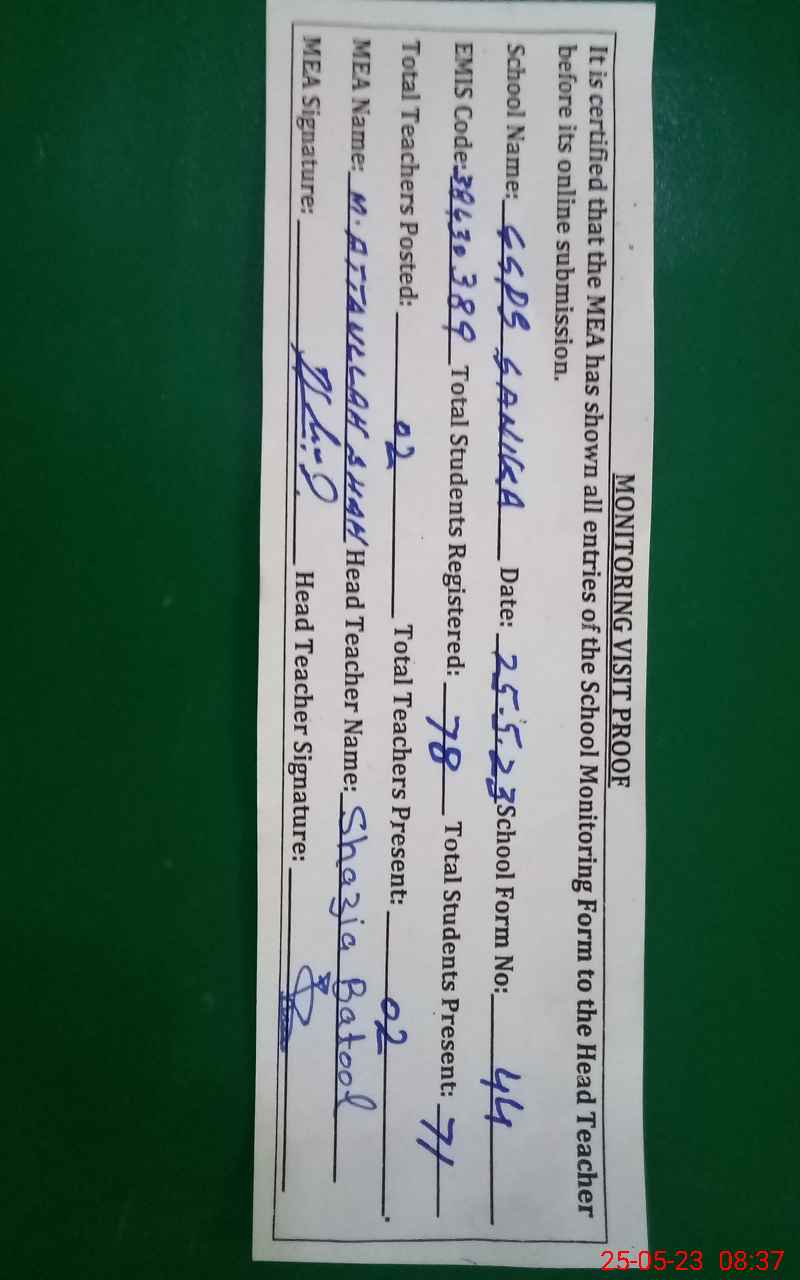 MONITORING VISIT PROOF
It is certified that the MEA has shown all entries of the School Monitoring Form to the Head Teacher
before its online submission.
School Name: GGPS SANIKA Date: 25.5.23 School Form No: 44
EMIS Code: 38630389 Total Students Registered: 78 Total Students Present: 71
Total Teachers Posted: 02 Total Teachers Present: 02.
MEA Name: M. ATTAULLAH SHAH Head Teacher Name: Shazia Batool
MEA Signature: Head Teacher Signature:
25-05-23 08:37